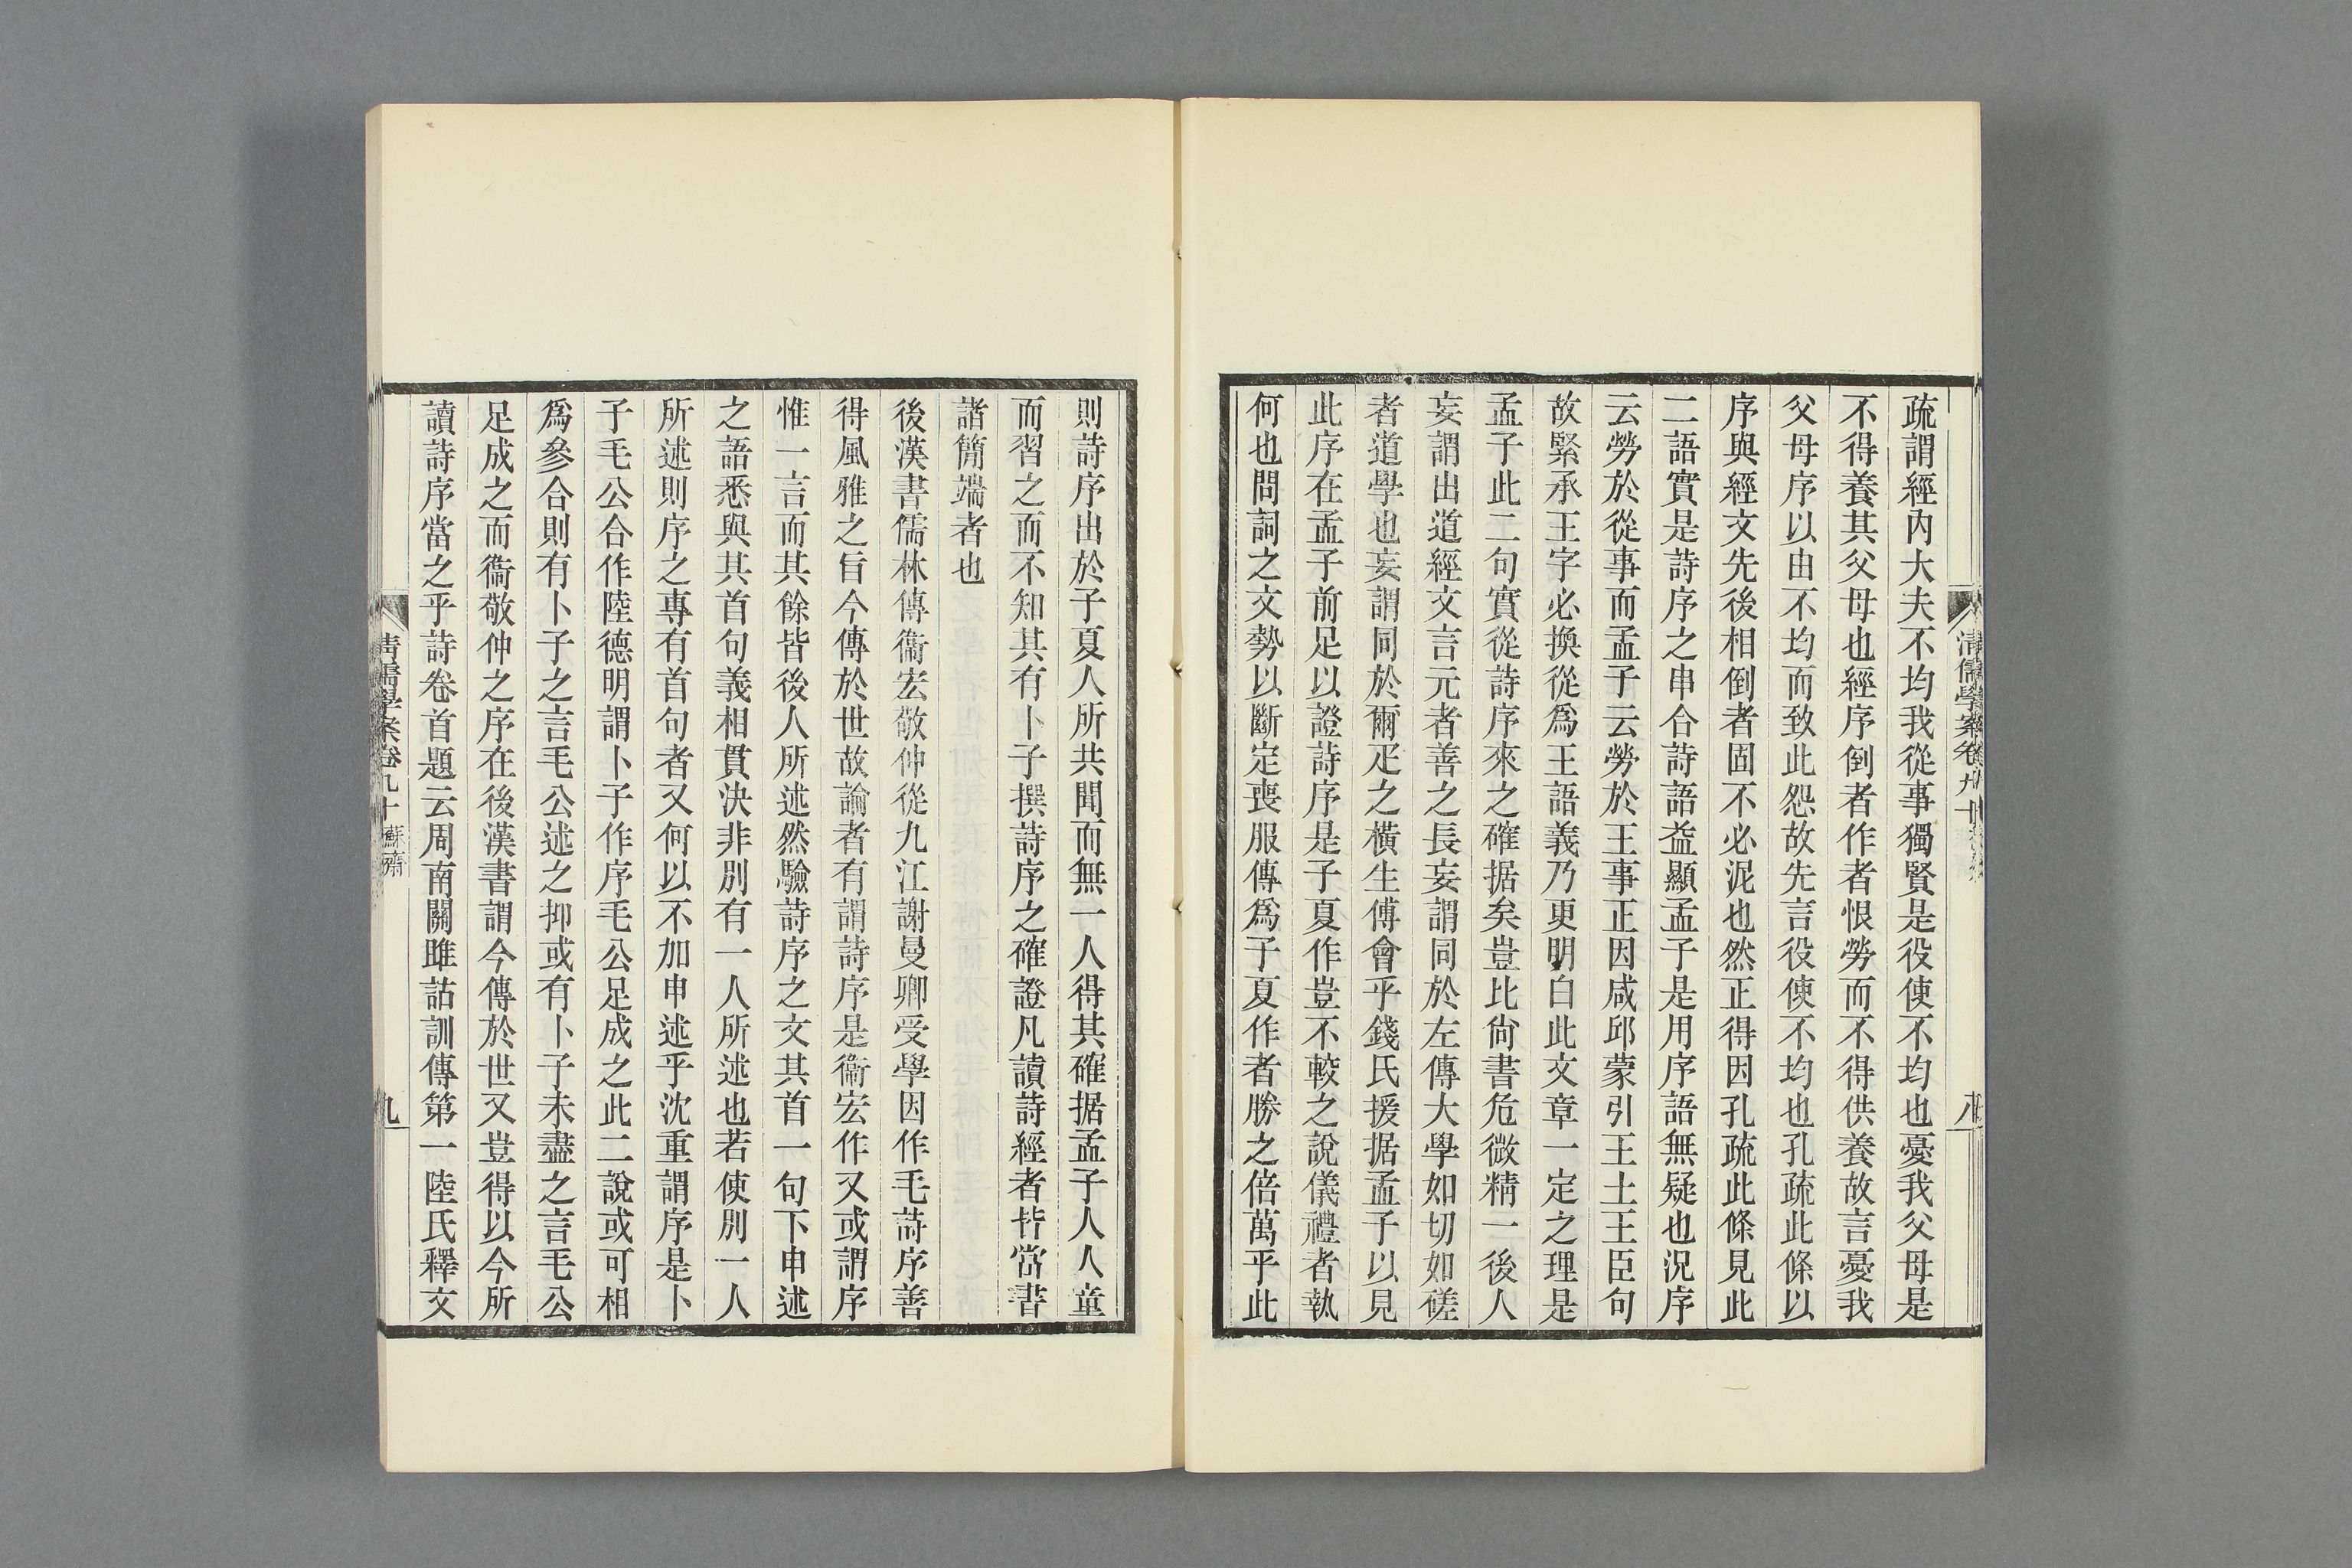 清儒學案卷九十
八
疏謂經內大夫不均我從事獨賢是役使不均也憂我父母是
不得養其父母也經序倒者作者恨勞而不得供養故言憂我
父母序以由不均而致此怨故先言役使不均也孔疏此條以
序與經文先後相倒者固不必泥也然正得因孔疏此條見此
二語實是詩序之申合詩語益顯孟子是用序語無疑也況序
云勞於從事而孟子云勞於王事正因咸邱蒙引王土王臣句
故緊承王字必換從為王語義乃更明白此文章一定之理是
孟子此二句實從詩序來之確据矣豈比尙書危微精一後人
妄謂出道經文言元者善之長妄謂同於左傳大學如切如磋
者道學也妄謂同於爾疋之橫生傅會乎錢氏援据孟子以見
此序在孟子前足以證詩序是子夏作豈不較之說儀禮者執
何也問詞之文勢以斷定喪服傳為子夏作者勝之倍萬乎此
則詩序出於子夏人所共聞而無一人得其確据孟子人人童
而習之而不知其有卜子撰詩序之確證凡讀詩經者皆當書
諸簡端者也
後漢書儒林傳衞宏敬仲從九江謝曼卿受學因作毛詩序善
得風雅之旨今傳於世故論者有謂詩序是衞宏作又或謂序
惟一言而其餘皆後人所述然驗詩序之文其首一句下申述
之語悉與其首句義相貫決非別有一人所述也若使別一人
所述則序之專有首句者又何以不加申述乎沈重謂序是卜
子毛公合作陸德明謂卜子作序毛公足成之此二說或可相
為參合則有卜子之言毛公述之抑或有卜子未盡之言毛公
足成之而衞敬仲之序在後漢書謂今傳於世又豈得以今所
讀詩序當之乎詩卷首題云周南關雎詁訓傳第一陸氏釋文
清儒學案卷九十 蘇齋
九